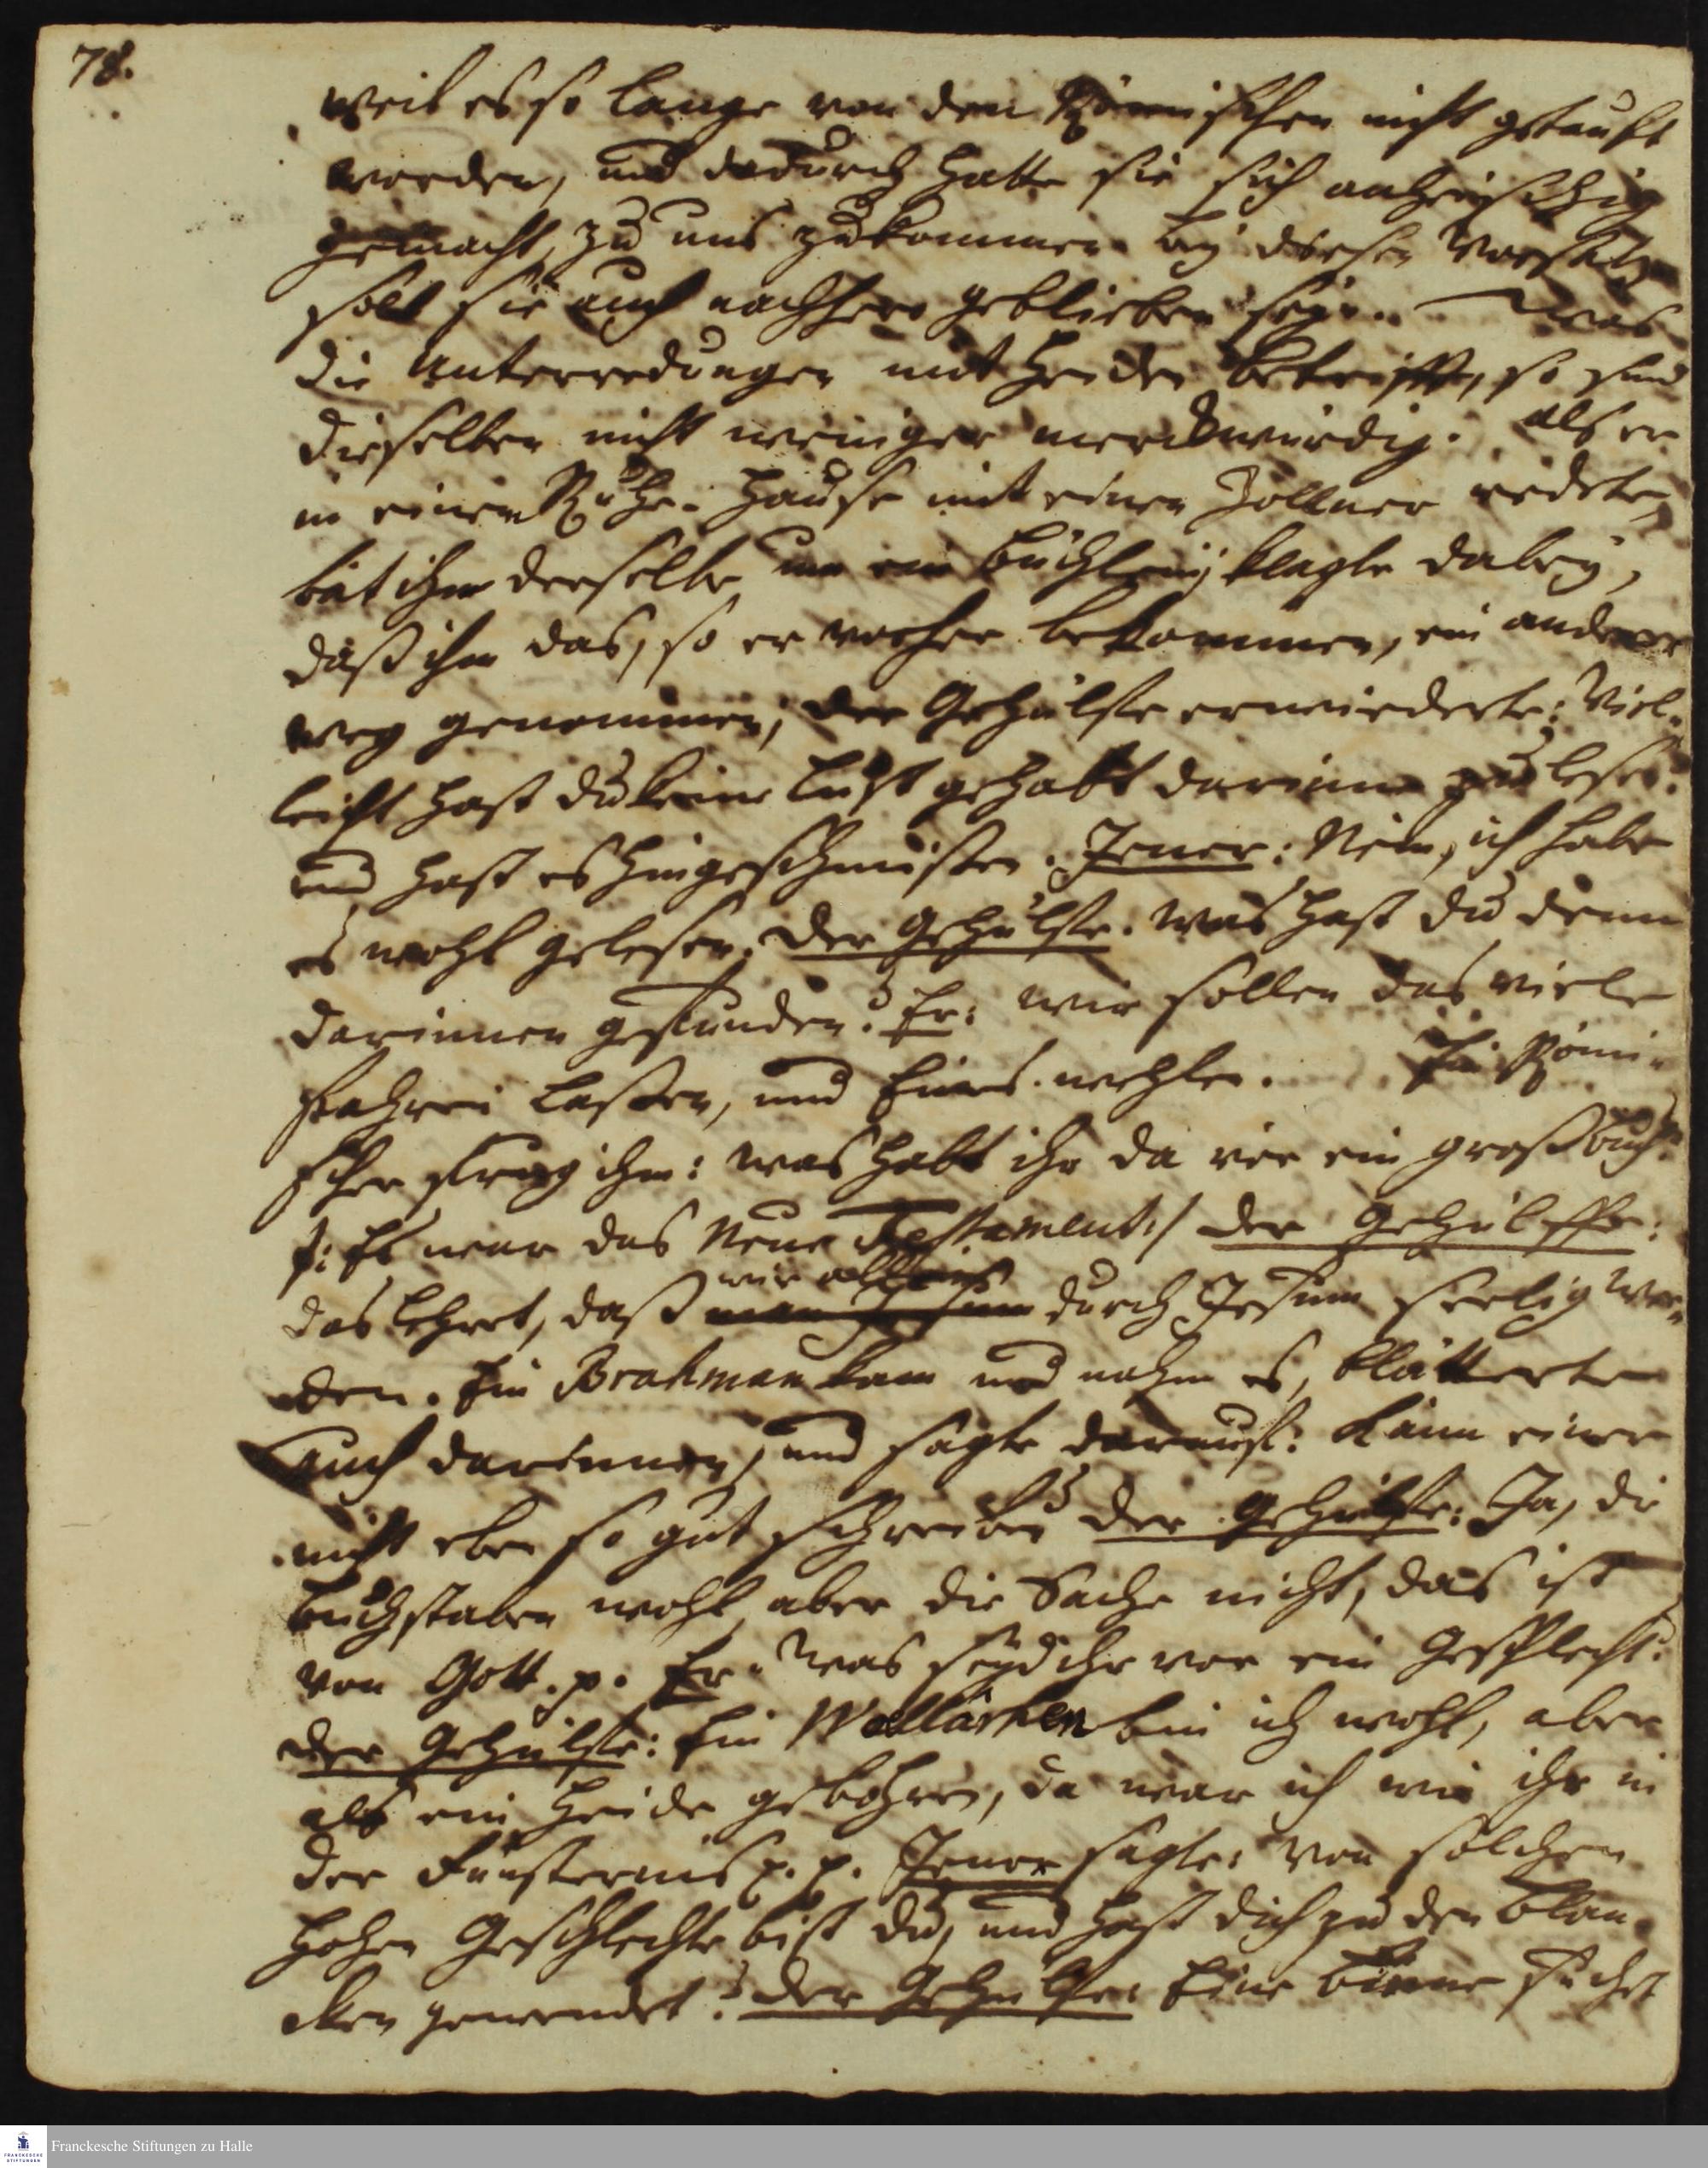 78.
weil es so lange von den Römischen nicht getauft
worden, und dadurch hatte sie sich anheischig
gemacht, zu uns zukommen. bey diesen Vorsatz
solt sie auch nachhero geblieben seyn. Was
die Unterredungen mit Heiden betrifft, so sind
dieselben nicht weniger merckwürdig. als er
in einem Ruhe-Hause mit einen Zollner redete,
bat ihn derselbe um ein Büchlein, klagte dabey,
daß ihm das, so er vorher bekommen, ein anderer
weg genommen; der Gehülfe erwiederte: Viel-
leicht hast du keine Lust gehabt darinne zu lesen,
und hast es hingeschmissen. Jener: Nein, ich habe
es wohl gelesen. Der Gehülfe. Was hast du denn
darinnen gefunden? Er: wir sollen das viele
fahren lassen, und Eines wehlen. Ein Römi-
scher frug ihn: was habt ihr da vor ein groß buch?
/: Es war das Neue Testament :/ der Gehülffe:
das lehret, daß wir durch Jesum seelig wer-
den. Ein Brahman kam und nahm es, blätterte
auch darinnen, und sagte darauf: kann einer
nicht eben so gut schreiben? der Gehülfe: Ja, die
buchstaben wohl, aber die Sache nicht, das ist
von Gott. p. Er: Was seyd ihr vor ein Geschlecht?
der Gehülfe: Ein Wellärhen bin ich wohl, aber
als ein Heide gebohren, da war ich wie ihr in
der Finsternis p. p. Jener sagte: Von solchen
hohen Geschlechte bist du, und hast dich zu den blan-
cken gewendet? der Gehülfe: Eine Biene suchet
Franckesche Stiftungen zu Halle